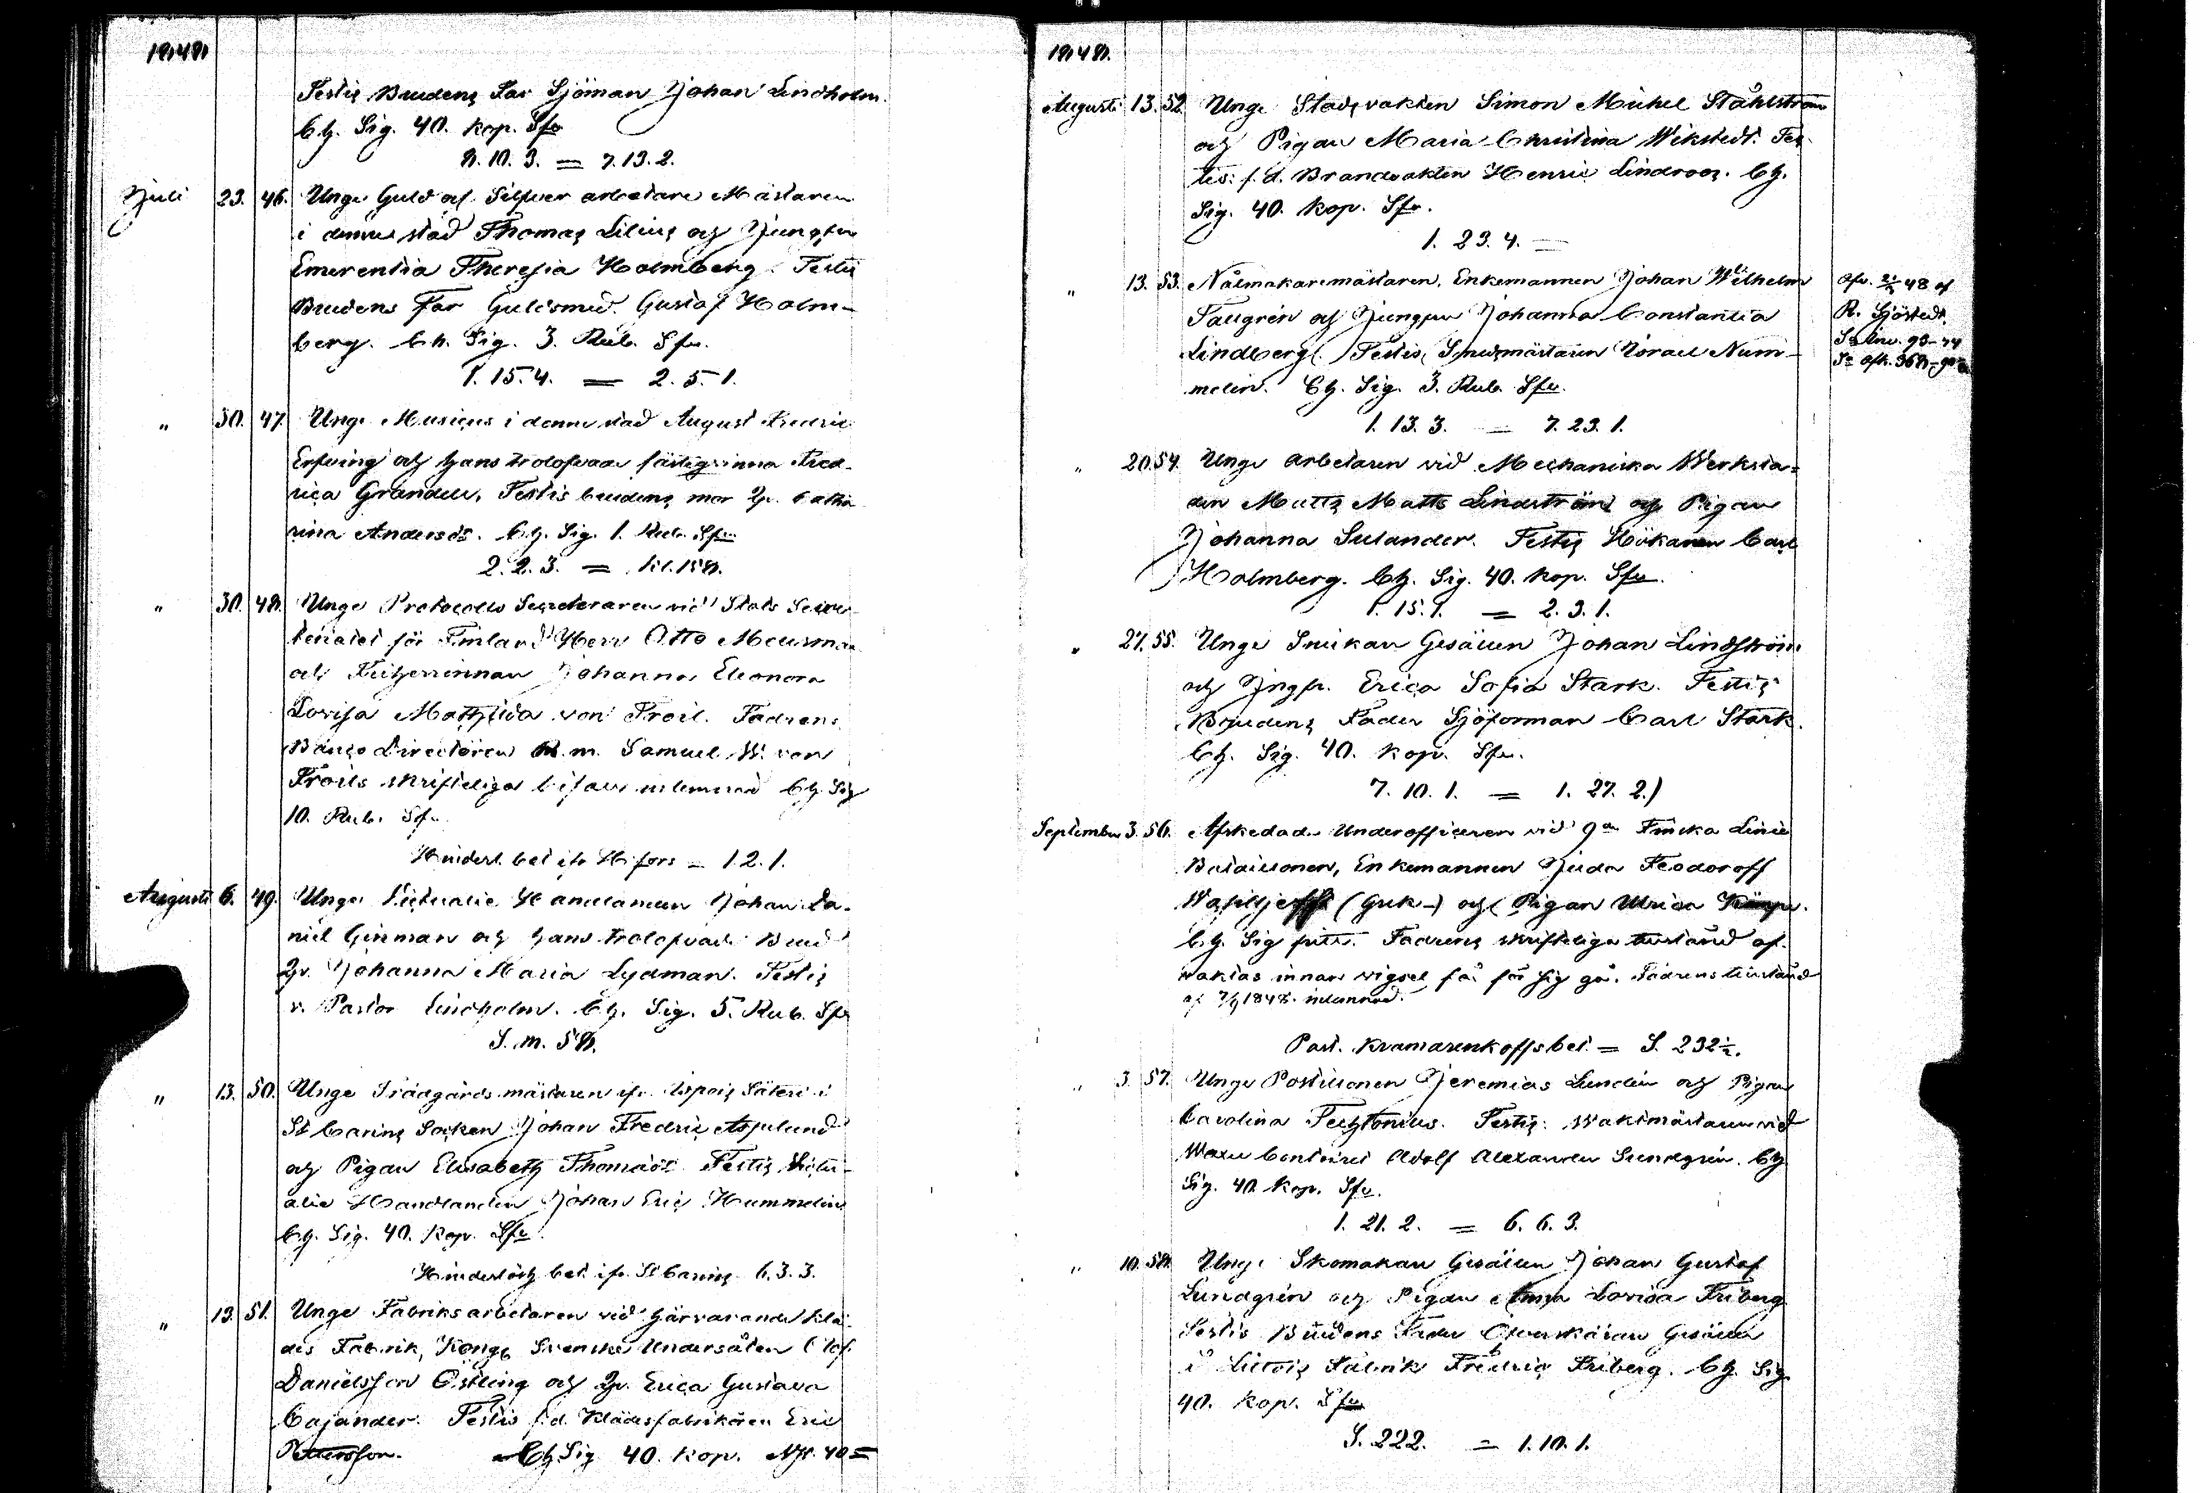 1848
Testis Brudens Far Sjöman Johan Lindholm.
Ch. Sig. 40. kop. Sfr
8. 10. 3. = 7. 13. 2.
Juli 23. 46. Unge Guld och Silfver arbetare Mästaren
i denna stad Thomas Lilius och Jungfru
Emerentia Theresia Holmberg. Testis
Brudens Far Guldsmed Gustaf Holm-
berg. Ch. Sig. 3. Rub. Sfr.
1. 15. 4. = 2. 5. 1.
" 30. 47. Unge Musicus i denna stad August Fredric
Erfving och hans trolofvade fästeqvinna Fred-
rica Grandell, Testis brudens mor Jv. Catha
rina Andersdr. Ch. Sig. 1. Rub. Sfr
2. 2. 3. =
" 30. 48. Unge Protocolls Secreteraren vid Stats Secre-
teriatet för Finland Herr Otto Meurman
och Friherrinnan Johanna Eleonora
Lovisa Mathilda von Troil. Fadrens
Banco Directören M. m. Samuel W. von
Troils skrifteliga bifall inlemnad Ch. Sig
10. Rub. Sfr.
Hindersl. bet ifr. H.fors = 1. 2. 1.
Augusti 6. 49. Unge Victualie Handlanden Johan Da-
niel Ginman och hans trolofvade Brud
Jv. Johanna Maria Lydman. Testis
v. Pastor Lindholm. Ch. Sig. 5. Rub. Sfr
S. m. 58.
" 13. 50. Unge Trädgårds mästaren ifr. Uspois Säteri i
St Carins Socken Johan Fredric Asplund
och Pigan Elisabeth Thomasdr. Testis Victu-
alie Handlanden Johan Eric Hummelin
Ch. Sig. 40. kop. Sfr
Hinderslösh. bet. ifr. St Carins 6. 3. 3.
" 13. 51. Unge Fabriksarbetaren vid härvarande klä-
des Fabrik, Kongl. Svenske Undersåten Olof
Danielsson Östling och Jv. Erica Gustava
Cajander. Testis f.d. Klädesfabrikören Eric
Pettersson. Ch Sig 40. kop. 40 =
1848.
Augusti 13. 52. Unge Stadsvakten Simon Michel Ståhlström
och Pigan Maria Christina Wikstedt. Tes-
tis: f.d. Brandvakten Henric Lindroos. Ch.
Sig. 40. kop. Sfr.
1. 23. 4. =
" 13. 53. Nålmakaremästaren, Enkemannen Johan Wilhelm
Tallgrén och Jungfru Johanna Constantia
Lindberg. Testis Smedmästaren Israel Num-
melin. Ch. Sig. 3. Rub. Sfr.
1. 13. 3. = 7. 23. 1.
48 af
R. Sjöstedt.
" 20. 54. Unge arbetaren vid Mechaniska Werksta-
den Matts Matts Lindström och Pigan
Johanna Sulander. Testis Hökaren Carl
Holmberg. Ch. Sig. 40. kop. Sfr.
1. 15. 1. = 2. 3. 1.
" 27. 55. Unge Snickare Gesällen Johan Lindström
och Jngfr. Erica Sofia Stark. Testis
Brudens Fader Sjöforman Carl Stark.
Ch. Sig. 40. kop. Sfr.
7. 10. 1. = 1. 27. 2.)
September 3. 56. Afskedade Underofficeren vid 9de Finska Linie
Bataillonen, Enkemannen Juda Feodoroff
Wasiljeff (Grek-) och Pigan Ulrica
Ch. Sig fritt. Fadrens skrifteliga tillstånd af-
waktas innan vigsel får för sig gå. Fadrens tillstånd
af 7/9 1848. inlemnad.
Past. Kramarenkoffs bet. = S. 232½.
" 3. 57. Unge Postillonen Jeremias Lundin och Pigan
Carolina Techtonius. Testis: Waktmästaren vid
Wexel Contoiret Adolf Alexander Sundgrén. Ch
Sig. 40. kop. Sfr.
1. 21. 2. = 6. 6. 3.
" 10. 58. Unge Skomakare Gesällen Johan Gustaf
Lundgrén och Pigan Anna Lovisa Friberg
Testis Brudens Fader Öfverskärare Gesällen
i Littois Fabrik Fredric Friberg. Ch. Sig
40. kop. Sfr
S. 222. = 1. 10. 1.